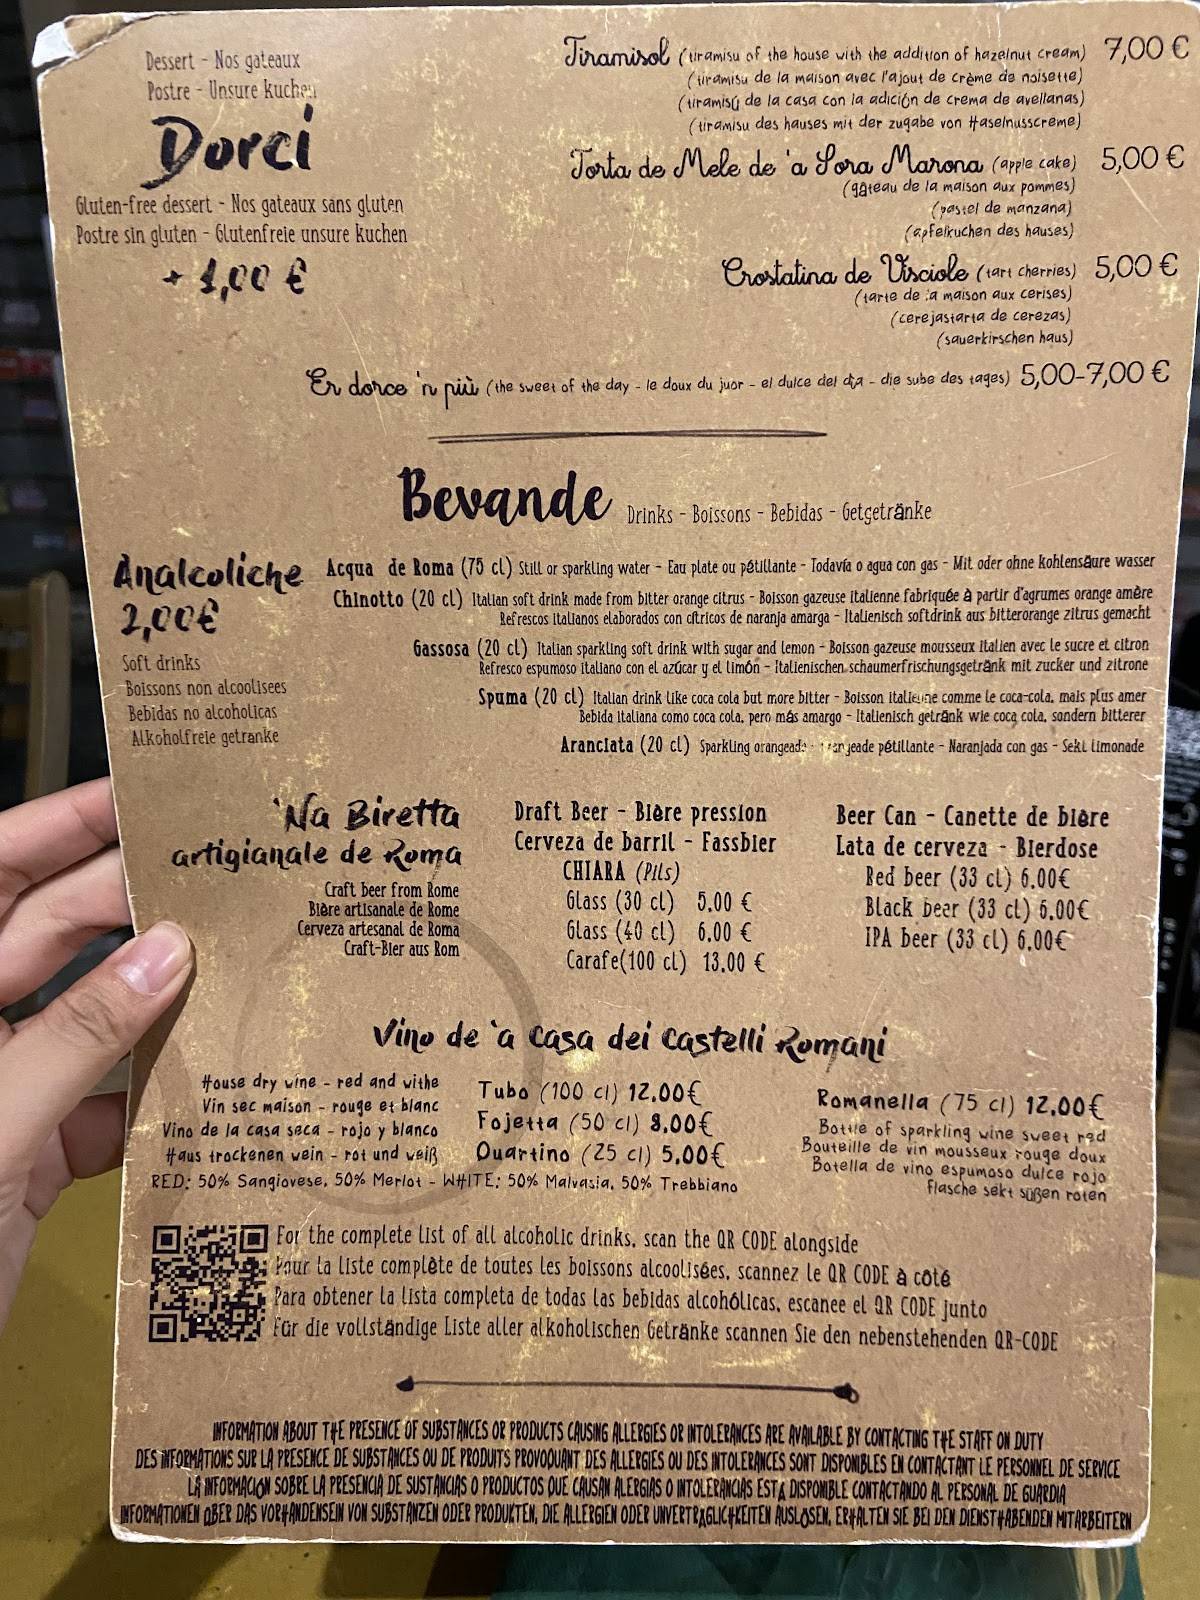 Dessert - Nos gateaux
Postre - Unsure kuchen
Dorci
Gluten-free dessert - Nos gateaux sans gluten
Postre sin gluten - Glutenfreie unsure kuchen
+ 1,00 €
Tiramisol (tiramisu of the house with the addition of hazelnut cream) 7,00 €
(tiramisu de la maison avec l'ajout de crème de noisette)
(tiramisú de la casa con la adición de crema de avellanas)
(tiramisu des hauses mit der zugabe von Haselnusscreme)
Torta de Mele de 'a Sora Marona (apple cake) 5,00 €
(gâteau de la maison aux pommes)
(pastel de manzana)
(apfelkuchen des hauses)
Crostatina de Visciole (tart cherries) 5,00 €
(tarte de la maison aux cerises)
(cerejastarta de cerezas)
(sauerkirschen haus)
Er dorce 'n più (the sweet of the day - le doux du juor - el dulce del día - die sube des tages) 5,00-7,00 €
Bevande Drinks - Boissons - Bebidas - Getgetränke
Analcoliche
2,00€
Soft drinks
Boissons non alcoolisees
Bebidas no alcoholicas
Alkoholfreie getranke
Acqua de Roma (75 cl) Still or sparkling water - Eau plate ou pétillante - Todavía o agua con gas - Mit oder ohne kohlensäure wasser
Chinotto (20 cl) Italian soft drink made from bitter orange citrus - Boisson gazeuse italienne fabriquée à partir d'agrumes orange amère
Refrescos italianos elaborados con cítricos de naranja amarga - Italienisch softdrink aus bitterorange zitrus gemacht
Gassosa (20 cl) Italian sparkling soft drink with sugar and lemon - Boisson gazeuse mousseux italien avec le sucre et citron
Refresco espumoso italiano con el azúcar y el limón - Italienischen schaumerfrischungsgetränk mit zucker und zitrone
Spuma (20 cl) Italian drink like coca cola but more bitter - Boisson italienne comme le coca-cola, mais plus amer
Bebida italiana como coca cola, pero más amargo - Italienisch getränk wie coca cola, sondern bitterer
Aranciata (20 cl) Sparkling orangeade - pétillante - Naranjada con gas - Sekt limonade
'Na Biretta
artigianale de Roma
Craft beer from Rome
Bière artisanale de Rome
Cerveza artesanal de Roma
Craft-Bier aus Rom
Draft Beer - Bière pression
Cerveza de barril - Fassbier
CHIARA (Pils)
Glass (30 cl) 5.00 €
Glass (40 cl) 6.00 €
Carafe(100 cl) 13.00 €
Beer Can - Canette de bière
Lata de cerveza - Bierdose
Red beer (33 cl) 6.00€
Black beer (33 cl) 6.00€
IPA beer (33 cl) 6.00€
Vino de 'a Casa dei Castelli Romani
House dry wine - red and withe
Vin sec maison - rouge et blanc
Vino de la casa seca - rojo y blanco
Haus trockenen wein - rot und weiß
Tubo (100 cl) 12.00€
Fojetta (50 cl) 8.00€
Quartino (25 cl) 5.00€
RED: 50% Sangiovese, 50% Merlot - WHITE: 50% Malvasia, 50% Trebbiano
Romanella (75 cl) 12.00€
Bottle of sparkling wine sweet red
Bouteille de vin mousseux rouge doux
Botella de vino espumoso dulce rojo
Flasche sekt süßen roten
For the complete list of all alcoholic drinks, scan the QR CODE alongside
Pour la liste complète de toutes les boissons alcoolisées, scannez le QR CODE à côté
Para obtener la lista completa de todas las bebidas alcohólicas, escanee el QR CODE junto
Für die vollständige Liste aller alkoholischen Getränke scannen Sie den nebenstehenden QR-CODE
INFORMATION ABOUT THE PRESENCE OF SUBSTANCES OR PRODUCTS CAUSING ALLERGIES OR INTOLERANCES ARE AVAILABLE BY CONTACTING THE STAFF ON DUTY
DES INFORMATIONS SUR LA PRESENCE DE SUBSTANCES OU DE PRODUITS PROVOQUANT DES ALLERGIES OU DES INTOLERANCES SONT DISPONIBLES EN CONTACTANT LE PERSONNEL DE SERVICE
LA INFORMACIÓN SOBRE LA PRESENCIA DE SUSTANCIAS O PRODUCTOS QUE CAUSAN ALERGIAS O INTOLERANCIAS ESTÁ DISPONIBLE CONTACTANDO AL PERSONAL DE GUARDIA
INFORMATIONEN ÜBER DAS VORHANDENSEIN VON SUBSTANZEN ODER PRODUKTEN, DIE ALLERGIEN ODER UNVERTRÄGLICHKEITEN AUSLÖSEN, ERHALTEN SIE BEI DEN DIENSTHABENDEN MITARBEITERN